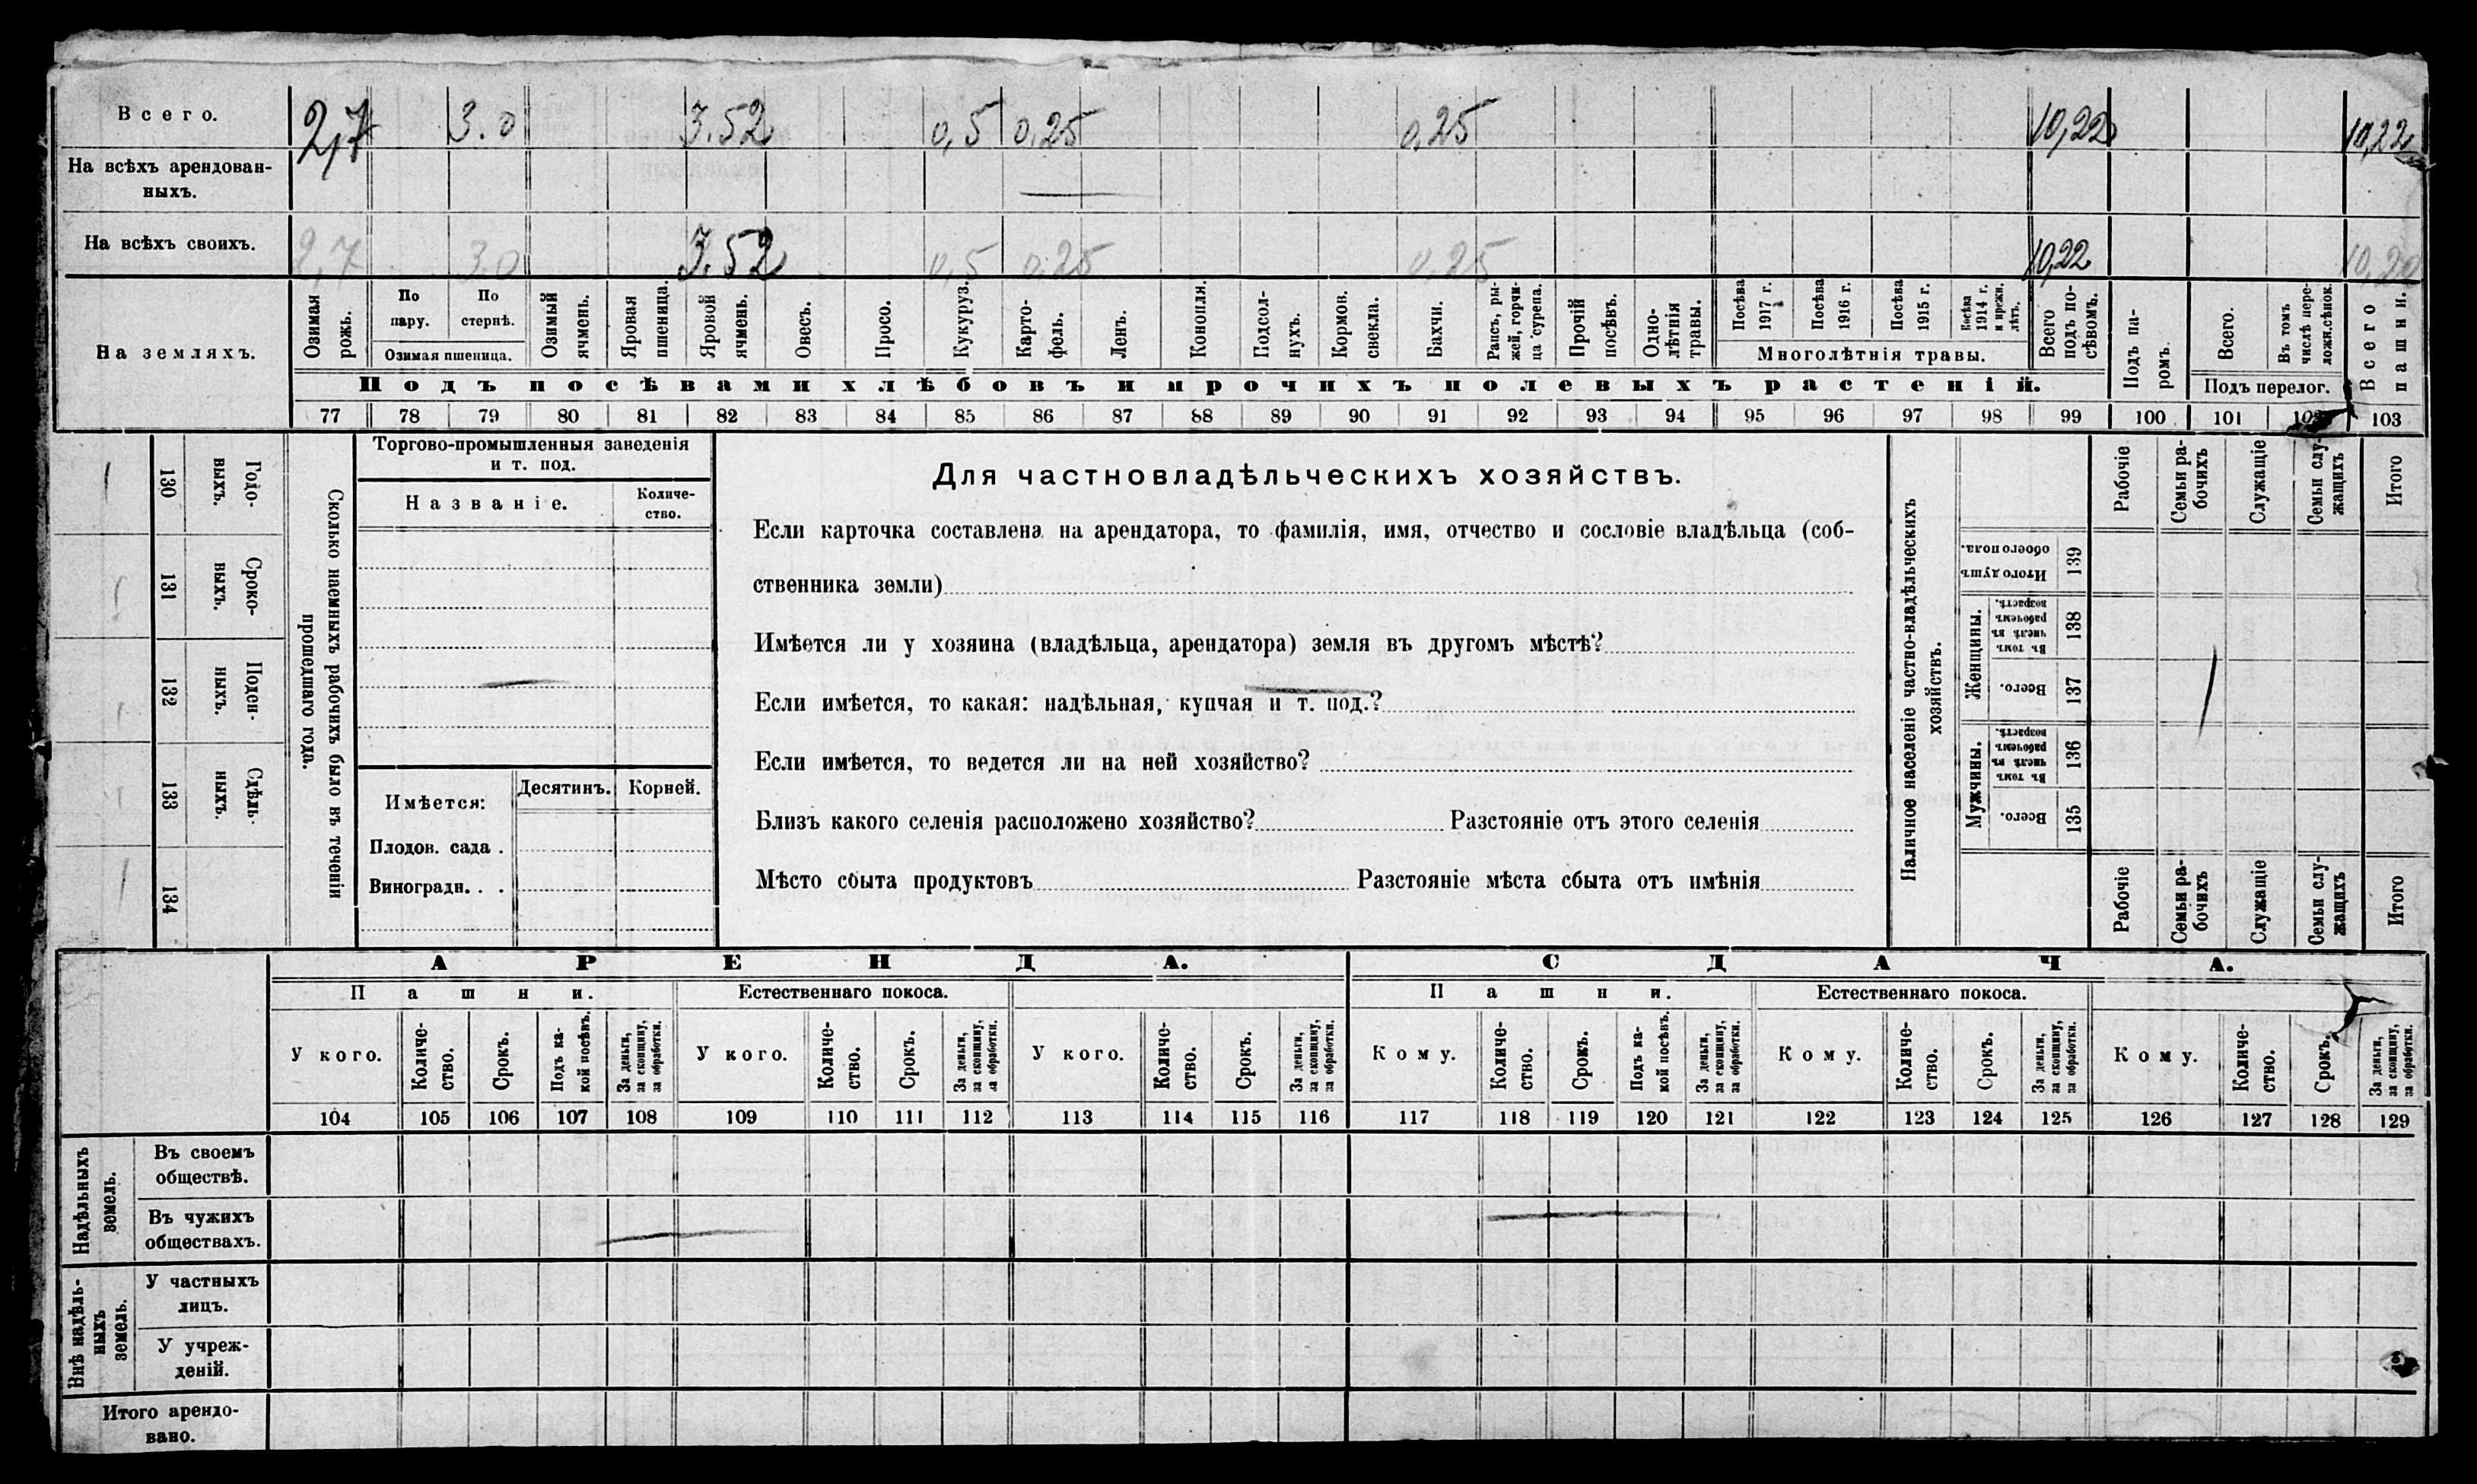 Всего. 2,7 3.0 3.52 0,5 0,25 0,25 10,22 10,22
На всѣхъ арендован-
ныхъ.
На всѣхъ своихъ. 2,7 3.0 3.52 0,5 0,25 0,25 10,22
На земляхъ.
Озимая рожь.
По пару.
По стернѣ.
Озимая пшеница.
Озимый ячмень.
Яровая пшеница.
Яровой ячмень.
Овесъ.
Просо.
Кукуруз.
Карто-
фель.
Ленъ.
Конопля.
Подсол-
нухъ.
Кормов. свекла.
Бахчи.
Рапсъ, ры-
жей, горчи-
ца сурепа.
Прочій посѣвъ.
Одно-
лѣтнія травы.
Посѣва 1917 г.
Посѣва 1916 г.
Посѣва 1915 г.
Посѣва 1914 г. и прежн. лѣтъ.
Многолѣтнія травы.
Всего подъ по-
сѣвомъ.
Подъ па-
ромъ.
Всего.
Въ томъ числѣ пере-
ложн. сѣнок.
Подъ перелог.
Всего пашни.
Подъ посѣвами хлѣбовъ и прочихъ полевыхъ растеній.
77 78 79 80 81 82 83 84 85 86 87 88 89 90 91 92 93 94 95 96 97 98 99 100 101 102 103
Годо-
выхъ.
130
Сроко-
выхъ.
131
Поден-
ныхъ.
132
Сдѣль-
ныхъ.
133
134
Сколько наемныхъ рабочихъ было въ теченіи
прошедшаго года.
Торгово-промышленныя заведенія
и т. под.
Названіе.
Количе-
ство.
Имѣется:
Десятинъ. Корней.
Плодов. сада .
Виноградн. . .
Для частновладѣльческихъ хозяйствъ.
Если карточка составлена на арендатора, то фамилія, имя, отчество и сословіе владѣльца (соб-
ственника земли)
Имѣется ли у хозяина (владѣльца, арендатора) земля въ другомъ мѣстѣ?
Если имѣется, то какая: надѣльная, купчая и т. под.?
Если имѣется, то ведется ли на ней хозяйство?
Близъ какого селенія расположено хозяйство? Разстояніе отъ этого селенія
Мѣсто сбыта продуктовъ Разстояніе мѣста сбыта отъ имѣнія
Наличное населеніе частно-владѣльческихъ
хозяйствъ.
Рабочіе
Семьи ра-
бочихъ
Служащіе
Семьи слу-
жащихъ
Итого
Итого душъ
обоего пола.
139
Женщины.
Въ томъ числѣ въ рабочемъ возрастѣ.
138
Всего.
137
Мужчины.
Въ томъ числѣ въ рабочемъ возрастѣ.
136
Всего.
135
Рабочіе
Семьи ра-
бочихъ
Служащіе
Семьи слу-
жащихъ
Итого
АРЕНДА. СДАЧА.
Пашни. Естественнаго покоса. Пашни. Естественнаго покоса.
У кого.
Количе-
ство.
Срокъ.
Подъ ка-
кой посѣвъ.
За деньги,
за скопщину,
за обработки.
У кого.
Количе-
ство.
Срокъ.
За деньги,
за скопщину,
за обработки.
У кого.
Количе-
ство.
Срокъ.
За деньги,
за скопщину,
за обработки.
Кому.
Количе-
ство.
Срокъ.
Подъ ка-
кой посѣвъ.
За деньги,
за скопщину,
за обработки.
Кому.
Количе-
ство.
Срокъ.
За деньги,
за скопщину,
за обработки.
Кому.
Количе-
ство.
Срокъ.
За деньги,
за скопщину,
за обработки.
104 105 106 107 108 109 110 111 112 113 114 115 116 117 118 119 120 121 122 123 124 125 126 127 128 129
Надѣльныхъ
земель.
Въ своемъ
обществѣ.
Въ чужихъ
обществахъ.
Внѣ надѣль-
ныхъ
земель.
У частныхъ
лицъ.
У учреж-
деній.
Итого арендо-
вано.